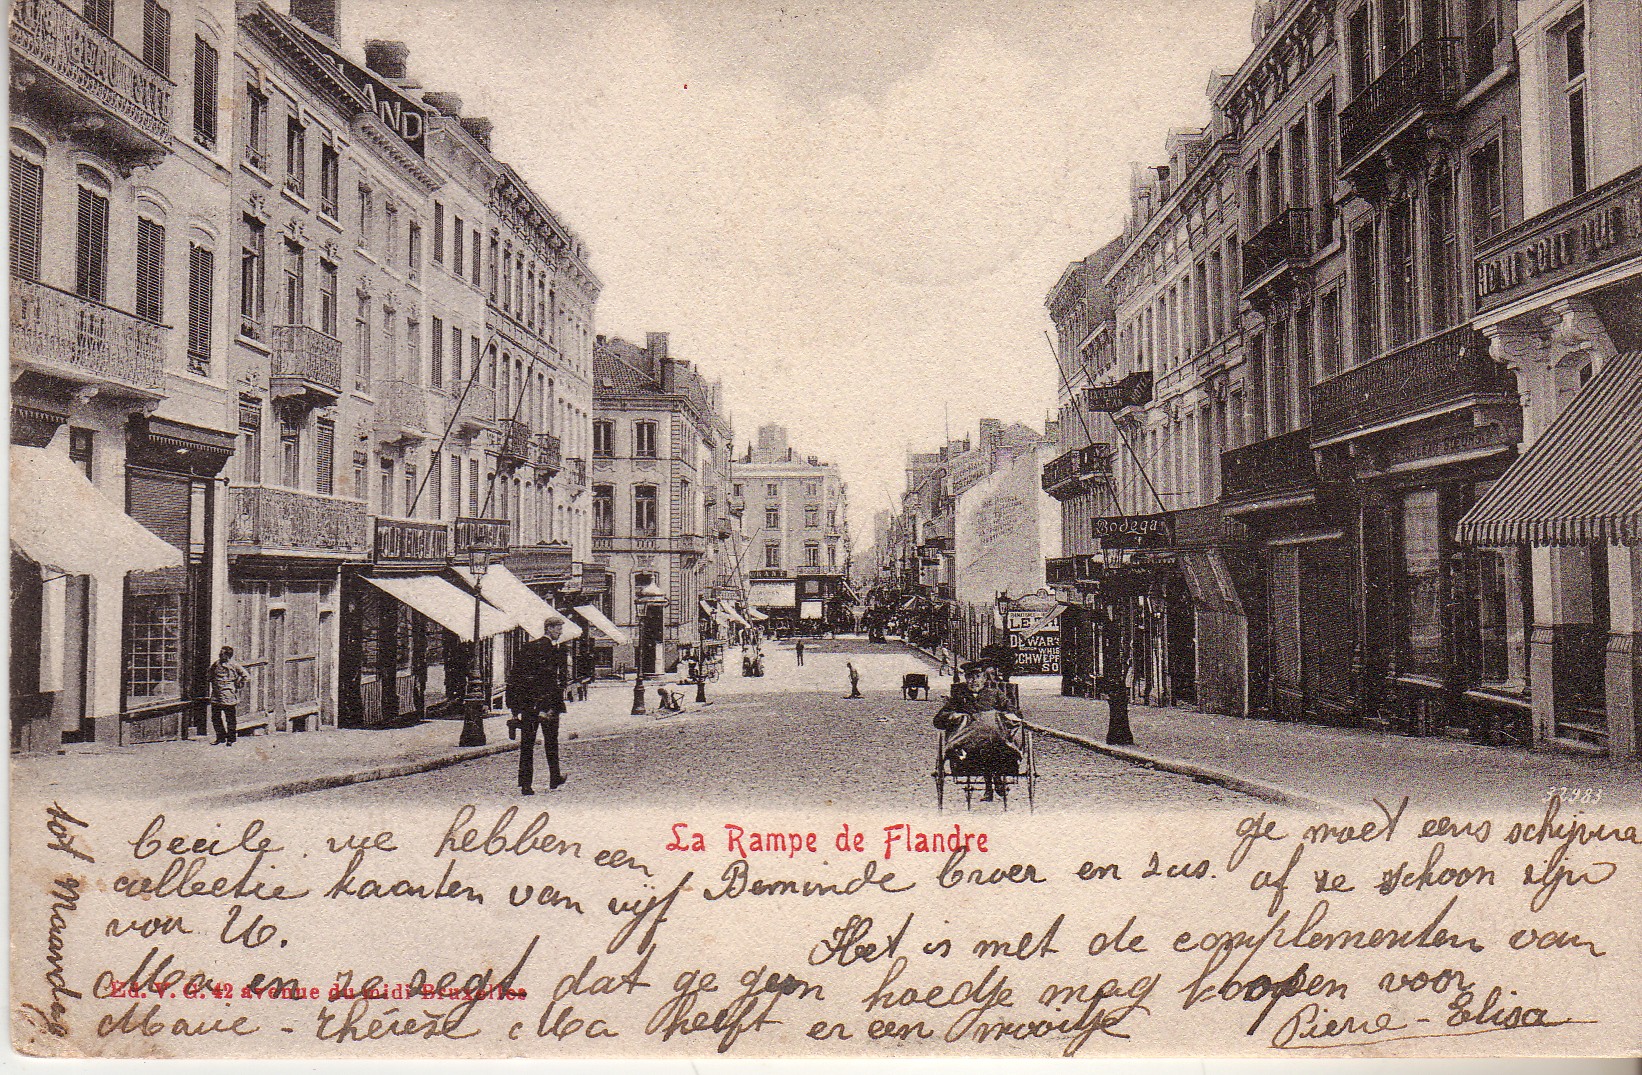 AND
OLD ENGLAND
TAVERNE
Bodega
LE
DEWAR'S
WHIS
SCHWEPP
SO
HONI SOIT QUI
32983
La Rampe de Flandre
Cecile we hebben een
collectie kaarten van vijf
voor U.
Beminde broer en zus.
Ge moet eens schijven
of ze schoon zijn
Het is met de complementen van
Ma en ze zegt dat ge geen hoedje mag koopen voor
Marie - Thérèse Ma heeft er een mooitje
Pierre - Elisa
tot Maandag
Ed. V. G. 42 avenue du midi Bruxelles